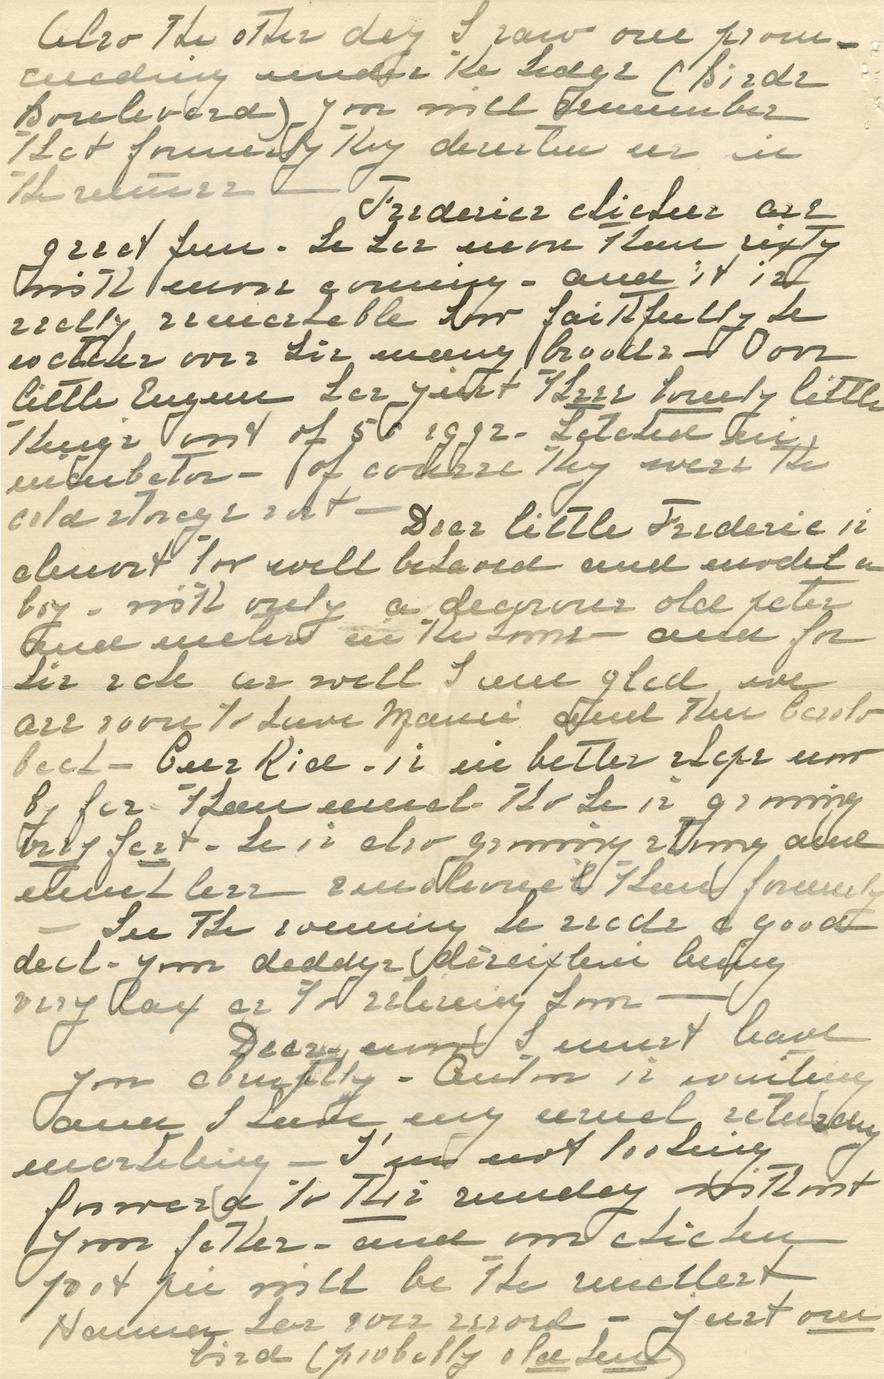 Also the other day I saw one prom-
enading under the hedge (Birds
Boulevard) you will remember
that formerly they deserten us in
the summer —
Frederics chickens are
great fun - he has more than sixty
with more coming - and it is
really remarkable how faithfully he
watches over his many broods - Poor
little Eugene has just three lonely little
things out of 50 eggs - hatched in
incubator - of course they were the
cold storage sort -
Dear little Frederic is
almost too well behaved and model a
boy - with only a decorous old pater
and mater in the home - and for
his sake as well I am glad we
are soon to have Mamie and then Carolo
back - Our Kid - is in better shape now
by far than usual - tho he is growing
very fast - he is also growing strong and
much less than formerly
- In the evening he reads a good
deal - your daddys discipline being
very lax as to retiring hour —
Dear, now I must leave
you abruptly - Anton is waiting
and I have my usual saturday
marketing - I'm not looking
forward to this sunday without
your father - and our chicken
pot pie will be the smallest
Hanna has ever served - just one
bird (probably old hen)